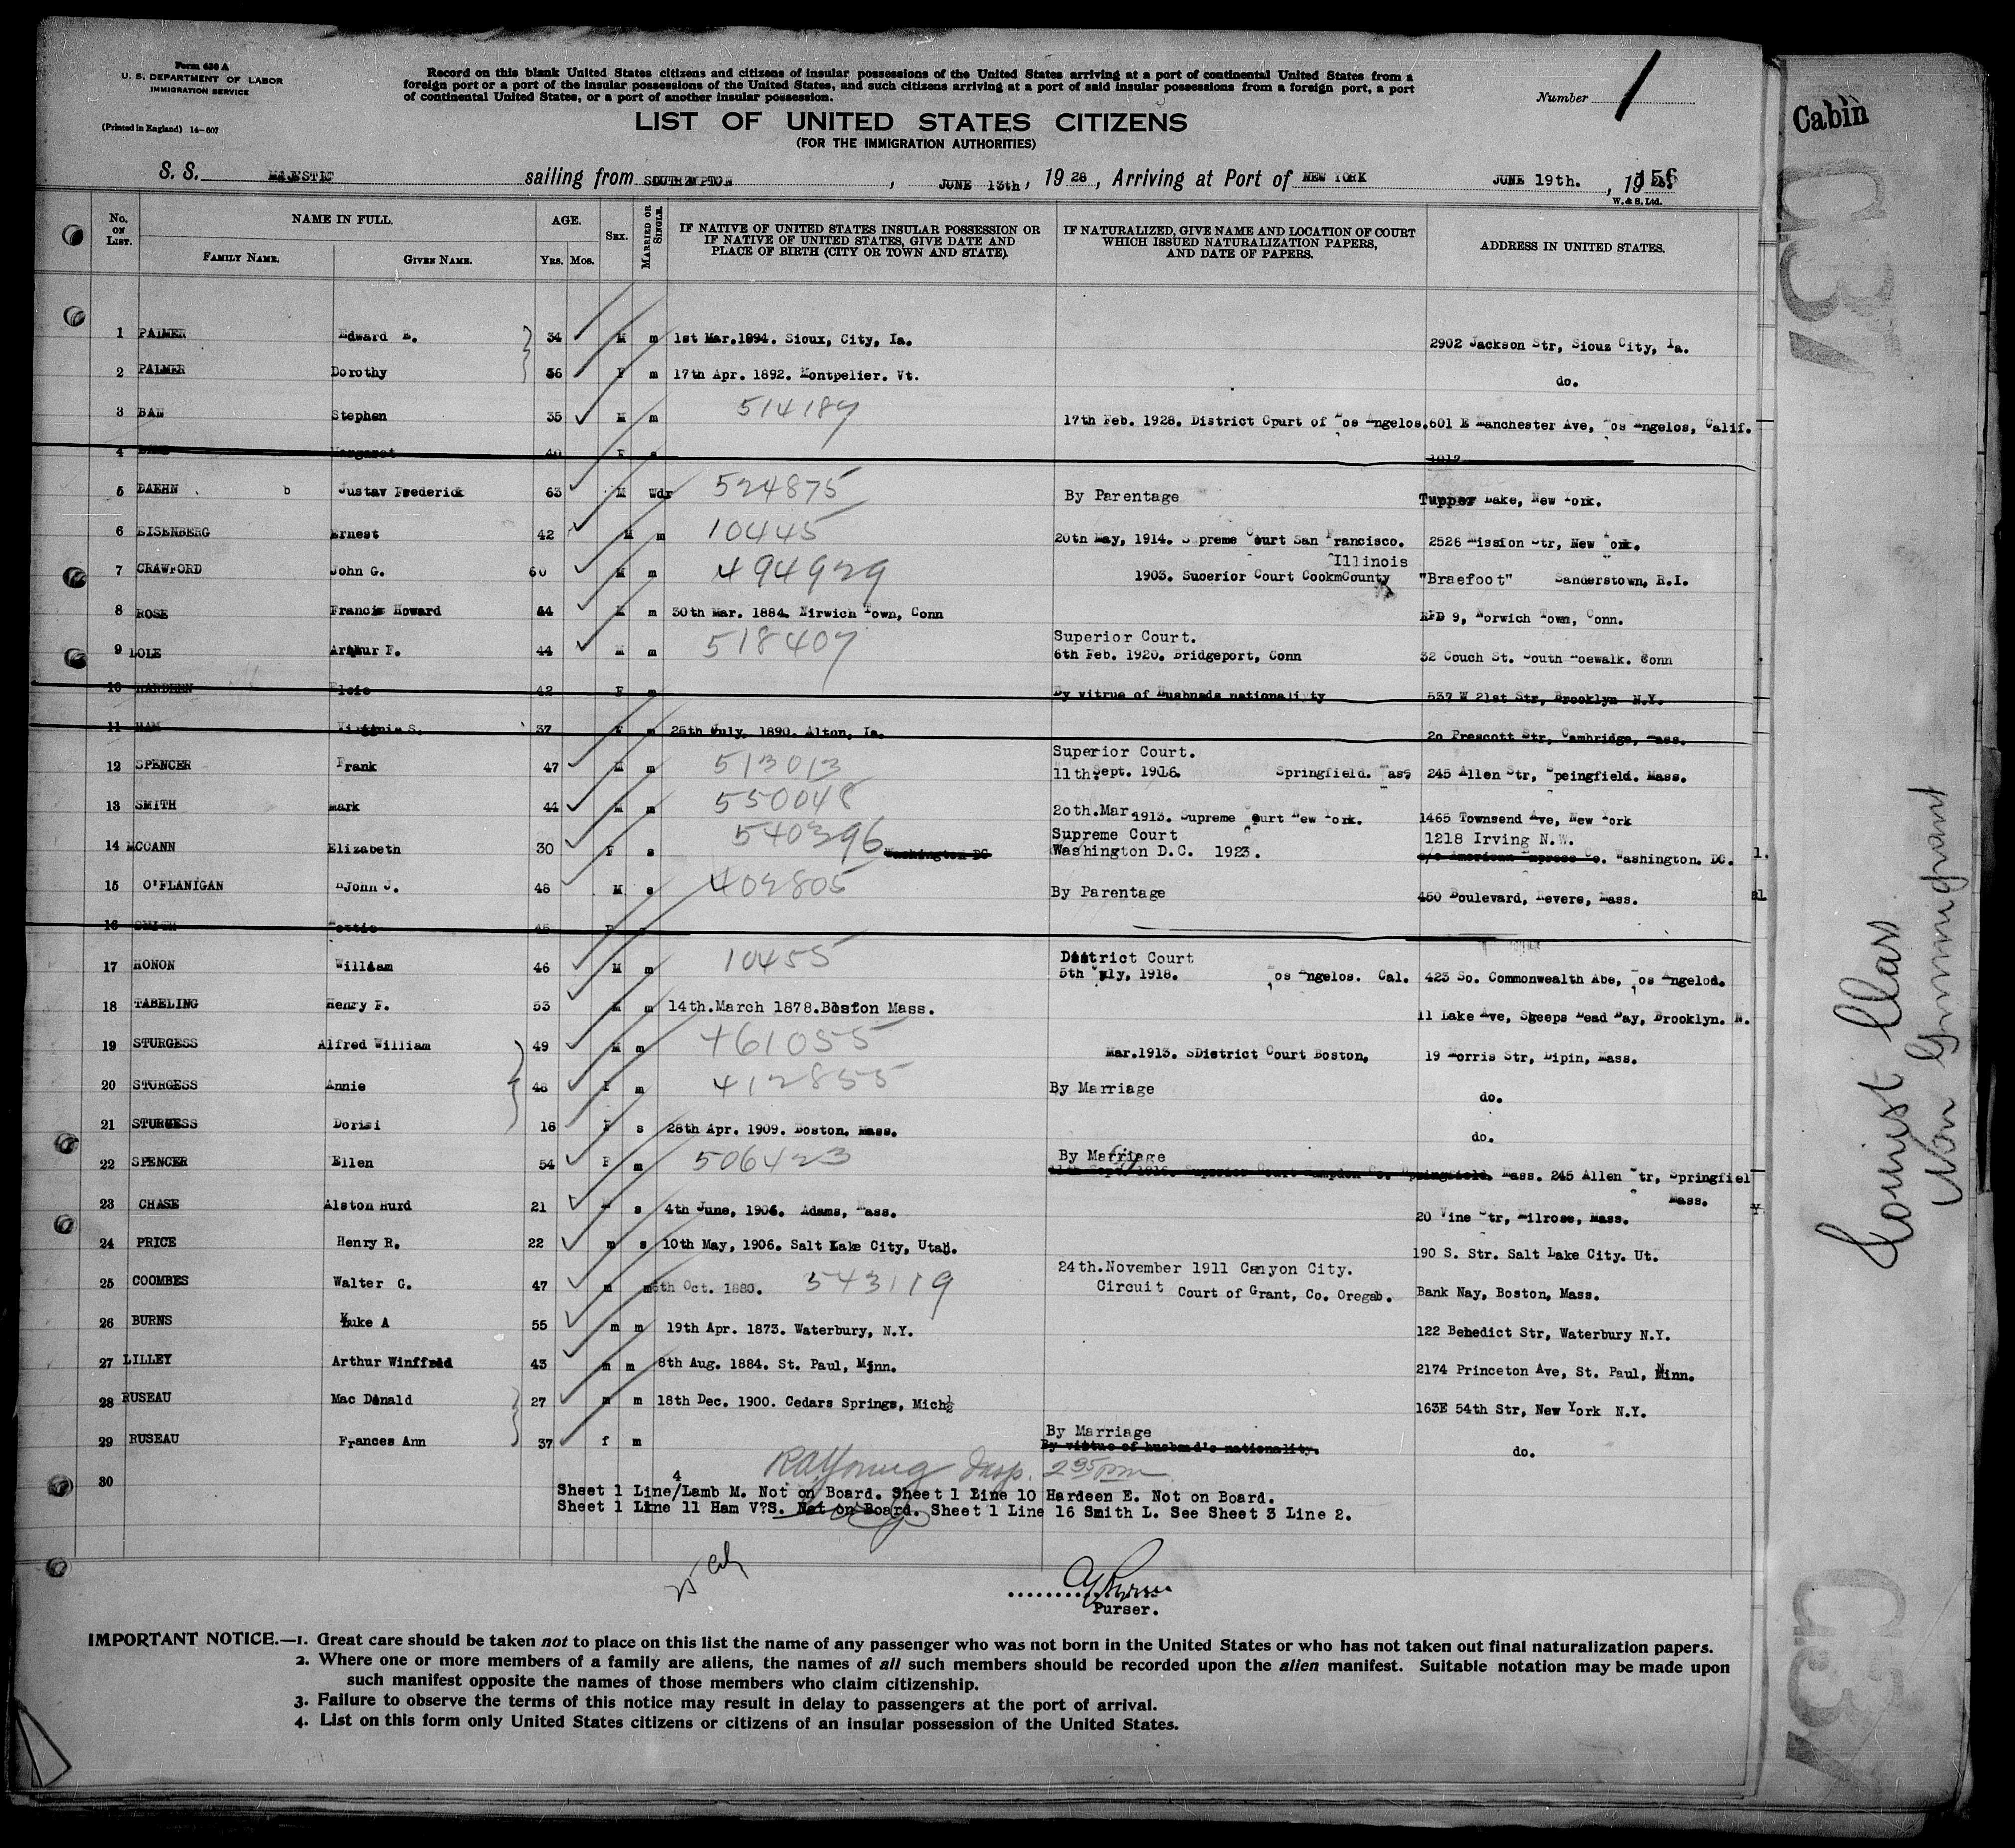 Form 630 A
U. S. DEPARTMENT OF LABOR
IMMIGRATION SERVICE
(Printed in England) 14-607
Record on this blank United States citizens and citizens of insular possessions of the United States arriving at a port of continental United States from a
foreign port or a port of the insular possessions of the United States, and such citizens arriving at a port of said insular possessions from a foreign port, a port
of continental United States, or a port of another insular possession.
Number 1
LIST OF UNITED STATES CITIZENS
(FOR THE IMMIGRATION AUTHORITIES)
S. S. MAJESTIC sailing from SOUTHAMPTON , JUNE 13th, 1928, Arriving at Port of NEW YORK JUNE 19th. , 19 156
W. & S. Ltd.
No. ON LIST. NAME IN FULL. FAMILY NAME. GIVEN NAME. AGE. YRS. MOS. SEX. MARRIED OR SINGLE. IF NATIVE OF UNITED STATES INSULAR POSSESSION OR IF NATIVE OF UNITED STATES, GIVE DATE AND PLACE OF BIRTH (CITY OR TOWN AND STATE). IF NATURALIZED, GIVE NAME AND LOCATION OF COURT WHICH ISSUED NATURALIZATION PAPERS, AND DATE OF PAPERS. ADDRESS IN UNITED STATES.
1 PALMER Edward E. 34 M m 1st Mar.1894. Sioux, City, Ia. 2902 Jackson Str, Sioux City, Ia.
2 PALMER Dorothy 36 F m 17th Apr. 1892. Montpelier. Vt. do.
3 BAN Stephen 35 M m 514187 17th Feb. 1928. District Cpurt of Los Angelos. 601 E Manchester Ave, Los Angelos, Calif.
4 LAMB Margaret 40 F s 1912
5 DAEHN b Justav Frederick 63 M Wdr 524875 By Parentage Tupper Lake, New York.
6 EISENBERG Ernest 42 M m 10445 20th May, 1914. Supreme Court San Francisco. 2526 Mission Str, New York.
7 CRAWFORD John G. 60 M m 494929 Illinois
1903. Suoerior Court CookmCounty "Braefoot" Sanderstown, R.I.
8 ROSE Francis Howard 44 M m 30th Mar. 1884. Nirwich Town, Conn RFD 9, Norwich Town, Conn.
9 LOLE Arthur F. 44 M m 518407 Superior Court.
6th Feb. 1920. Bridgeport, Conn 32 Couch St. South Noewalk. Conn
10 HARDEEN Elsie 42 F m By vitrue of Husbnads nationaliyty 537 W 21st Str, Brooklyn N.Y.
11 HAM Virginia S. 37 F m 25th July, 1890. Alton, Ia. 20 Prescott Str, Cambridge, Mass.
12 SPENCER Frank 47 M m 513013 Superior Court.
11th.Sept. 1916. Springfield. Mass 245 Allen Str, Speingfield. Mass.
13 SMITH Mark 44 M m 550048 20th.Mar.1913. Supreme Court New York. 1465 Townsend Ave, New York
14 MCCANN Elizabeth 30 F s 540396 Washington DC Supreme Court
Washington D.C. 1923. 1218 Irving N.W.
c/o American Express Co. Washington. DC.
15 O'FLANIGAN John J. 48 M s 402805 By Parentage 450 Boulevard, Revere, Mass.
16 SMITH 45 F
17 HONON William 46 M m 10455 District Court
5th July, 1918. Los Angelos. Cal. 423 So. Commonwealth Abe, Los Angelod.
18 TABELING Henry F. 53 M m 14th.March 1878.Boston Mass. 11 Lake Ave, Sheeps Head Bay, Brooklyn. N.
19 STURGESS Alfred William 49 M m 461055 Mar.1913. SDistrict Court Boston, 19 Morris Str, Lipin, Mass.
20 STURGESS Annie 48 F m 412855 By Marriage do.
21 STURGESS Dorisi 18 F s 28th Apr. 1909. Boston. Mass. do.
22 SPENCER Ellen 54 F m 506423 By Marriage
11th Sept. 1916. Superior Court Hampden Co. Springfield. Mass. 245 Allen Str, Springfiel
Mass.
23 CHASE Alston Hurd 21 M s 4th June, 1906. Adams, Mass. 20 Vine Str, Milrose, Mass.
24 PRICE Henry R. 22 m s 10th May, 1906. Salt Lake City, Utah. 190 S. Str. Salt Lake City. Ut.
25 COOMBES Walter G. 47 m m 6th Oct. 1880. 543119 24th.November 1911 Canyon City.
Circuit Court of Grant, Co. Oregab. Bank Nay, Boston, Mass.
26 BURNS Luke A 55 m m 19th Apr. 1873. Waterbury, N.Y. 122 Benedict Str, Waterbury N.Y.
27 LILLEY Arthur Winffred 43 m m 8th Aug. 1884. St. Paul, Minn. 2174 Princeton Ave, St. Paul, Minn.
28 RUSEAU Mac Donald 27 m m 18th Dec. 1900. Cedars Springs, Mich 163E 54th Str, New York N.Y.
29 RUSEAU Frances Ann 37 f m By Marriage
By virtue of husband's nationality. do.
RA Young Insp. 2 35 pm
30
Sheet 1 Line 4/Lamb M. Not on Board. Sheet 1 Line 10 Hardeen E. Not on Board.
Sheet 1 Line 11 Ham V?S. Not on Board. Sheet 1 Line 16 Smith L. See Sheet 3 Line 2.
Purser.
IMPORTANT NOTICE.—1. Great care should be taken not to place on this list the name of any passenger who was not born in the United States or who has not taken out final naturalization papers.
2. Where one or more members of a family are aliens, the names of all such members should be recorded upon the alien manifest. Suitable notation may be made upon
such manifest opposite the names of those members who claim citizenship.
3. Failure to observe the terms of this notice may result in delay to passengers at the port of arrival.
4. List on this form only United States citizens or citizens of an insular possession of the United States.
Cabin
Tourist Class
Non Immigrant